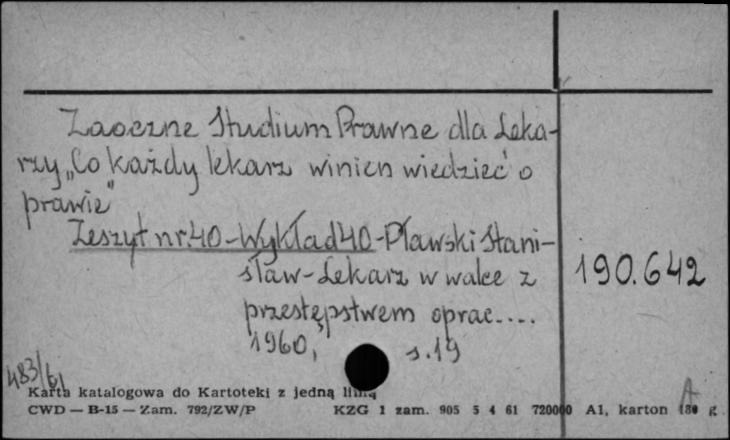 Zaoczne Studium Prawne dla Leka-
rzy „Co każdy lekarz winien wiedzieć o
prawie"
Zeszyt nr.40-Wykład 40-Pławski Stani-
sław-Lekarz w walce z
przestępstwem oprac....
1960, s.19
190.642
483/61
Karta katalogowa do Kartoteki z jedną linią
CWD — B-15 — Zam. 792/ZW/P KZG 1 zam. 905 5 4 61 720000 A1, karton g
A